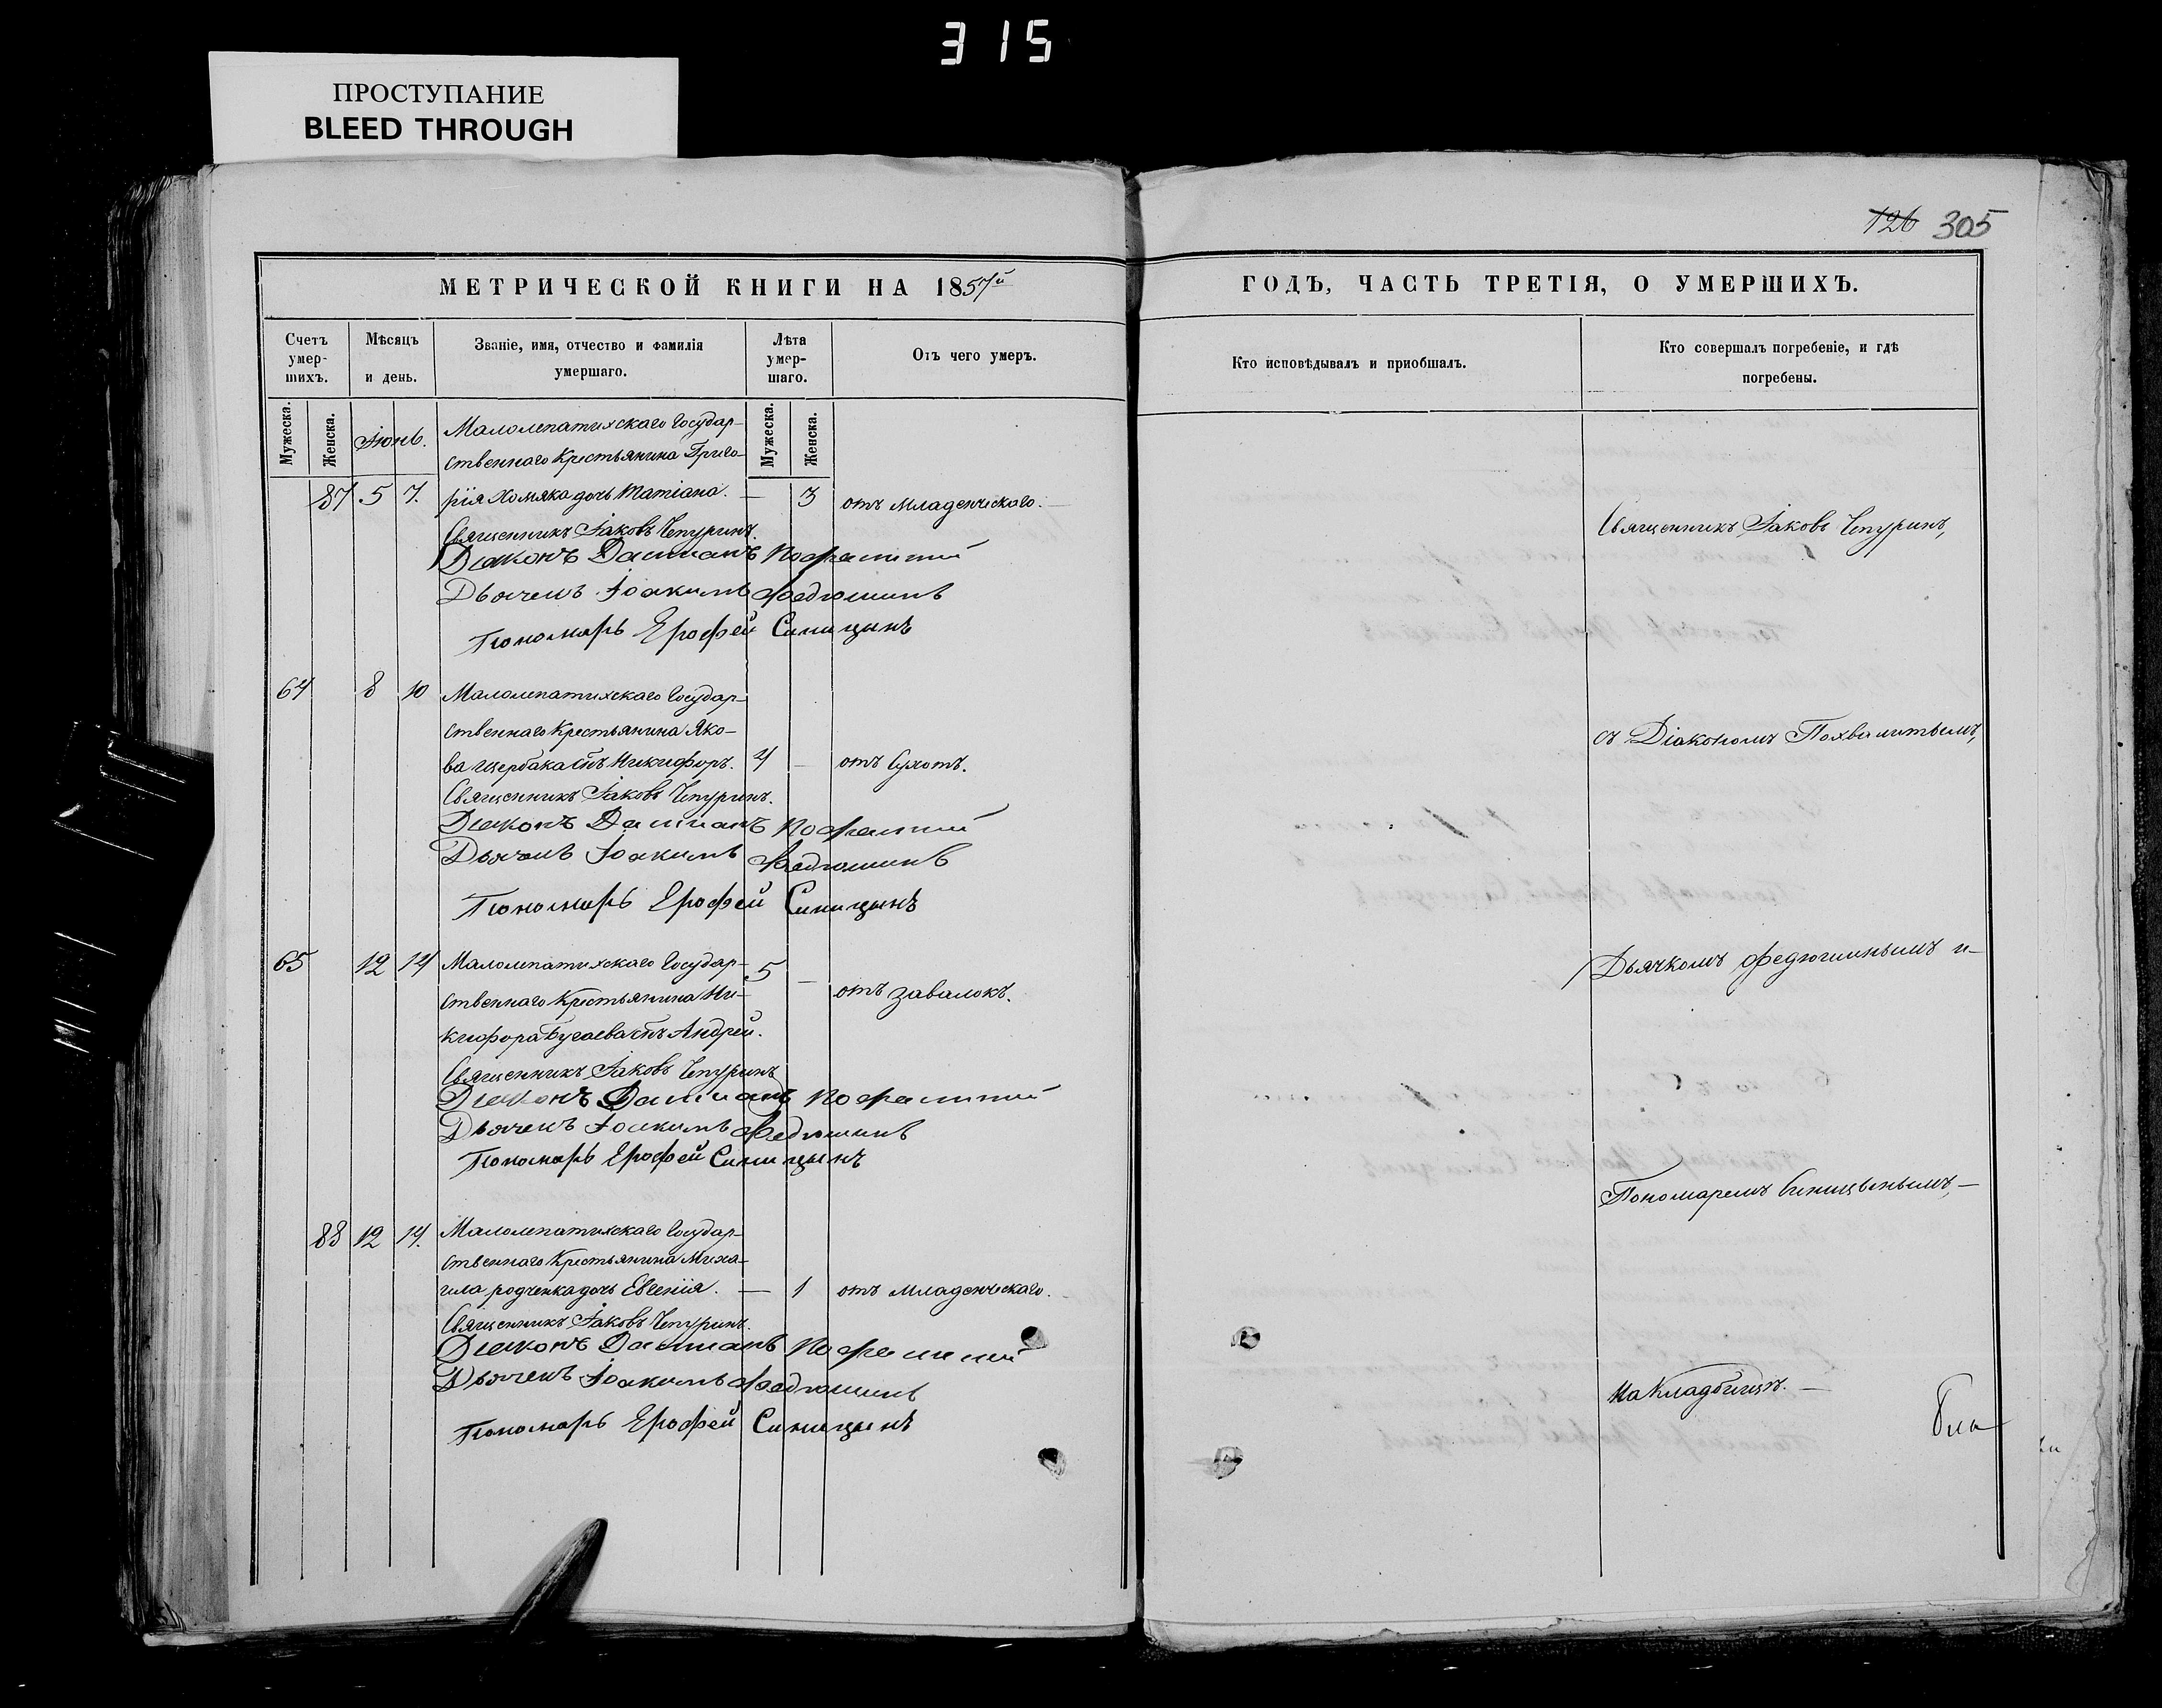 315
ПРОСТУПАНИЕ
BLEED THROUGH
126 305
МЕТРИЧЕСКОЙ КНИГИ НА 1857й
ГОДЪ, ЧАСТЬ ТРЕТІЯ, О УМЕРШИХЪ.
Счетъ умер-шихъ.
Мѣсяцъ и день.
Званіе, имя, отчество и фамилія умершаго.
Лѣта умер-шаго.
Отъ чего умеръ.
Кто исповѣдывалъ и приобщалъ.
Кто совершалъ погребеніе, и гдѣ погребены.
Мужеска. Женска. Мужеска. Женска.
Іюнь.
Малолепатихскаго Государ-
ственнаго Крестьянина Григо-
87 5 7. рія Хомяка дочь Татіана. — 3 отъ младенческаго.
Священникъ Іаковъ Чепуринъ.
Діаконъ Даміанъ
Дьячекъ Іоакимъ Федюшинъ
Пономарь Ерофей Синицынъ
64 8 10 Малолепатихскаго Государ-
ственнаго Крестьянина Яко-
ва Щербака сынъ Никифоръ. 4 — отъ Сухотъ.
Священникъ Іаковъ Чепуринъ.
Діаконъ Даміанъ
Дьячекъ Іоакимъ Федюшинъ
Пономарь Ерофей Синицынъ
65 12 14 Малолепатихскаго Государ- 5 —
ственнаго Крестьянина Ни- отъ завалокъ.
кифора Бугаева сынъ Андрей.
Священникъ Іаковъ Чепуринъ
Діаконъ Даміанъ
Дьячекъ Іоакимъ Федюшинъ
Пономарь Ерофей Синицынъ
88 12 14. Малолепатихскаго Государ-
ственнаго Крестьянина Миха-
ила родченка дочь Евгенія. — 1 отъ младенческаго.
Священникъ Іаковъ Чепуринъ.
Діаконъ Даміанъ
Дьячекъ Іоакимъ Федюшинъ
Пономарь Ерофей Синицынъ
Священникъ Іаковъ Чепуринъ,
съ Діакономъ
Дьячкомъ Федюшинымъ и
Пономаремъ Синицынымъ,—
на Кладбищѣ.—